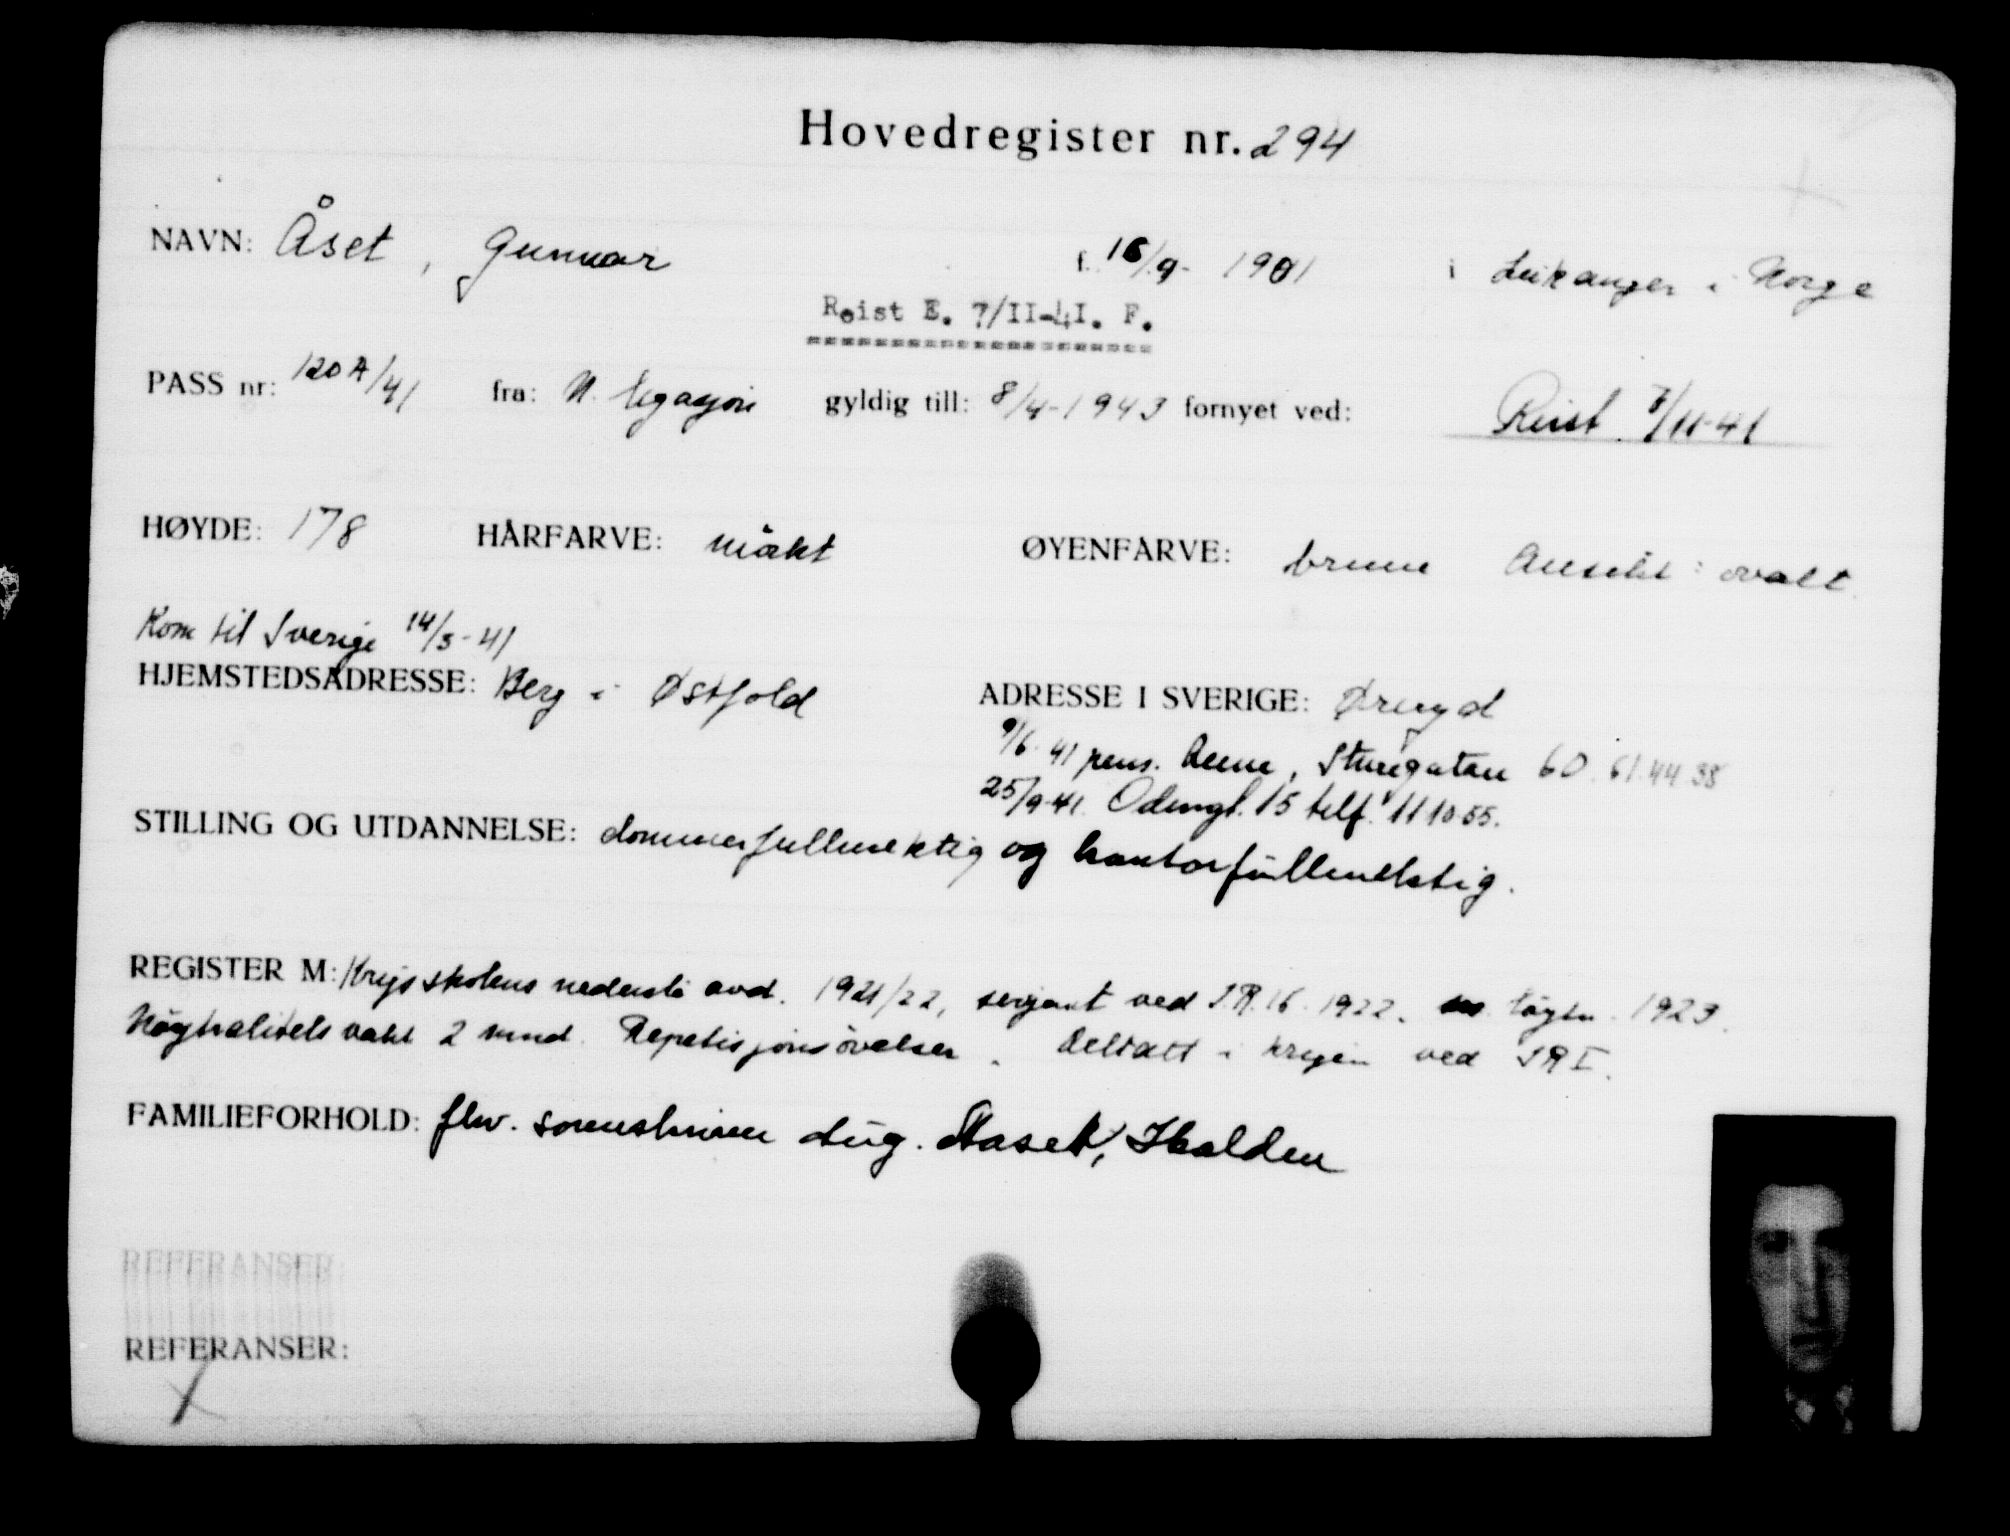 Hovedregister nr. 294
NAVN: Åset, Gunnar f. 16/9- 1901 i Leikanger i Norge
Reist E. 7/II-4I. F.
PASS nr: 120A/41 fra: N. legasjon gyldig till: 8/4-1943 fornyet ved: Reist 7/11-41
HØYDE: 178 HÅRFARVE: mørkt ØYENFARVE: brune Ansikt: ovalt
Kom til Sverige 14/3-41
HJEMSTEDSADRESSE: Berg i Østfold ADRESSE I SVERIGE: Øreryd
9/6-41 pens. Sturegatan 60. 61.44.38
25/9-41. Odengt. 15 telf. 11 10 55.
STILLING OG UTDANNELSE: dommerfullmektig og kontorfullmektig.
REGISTER M: Krigsskolens nederste avd. 1921/22, sersjant ved I.R.16. 1922. løytn. 1923.
Nøytralitetsvakt 2 mnd. Repetisjonsøvelser. Deltatt i krigen ved IR I.
FAMILIEFORHOLD: fhv. sorenskriver Aug. Aaset, Halden
REFERANSER:
REFERANSER: